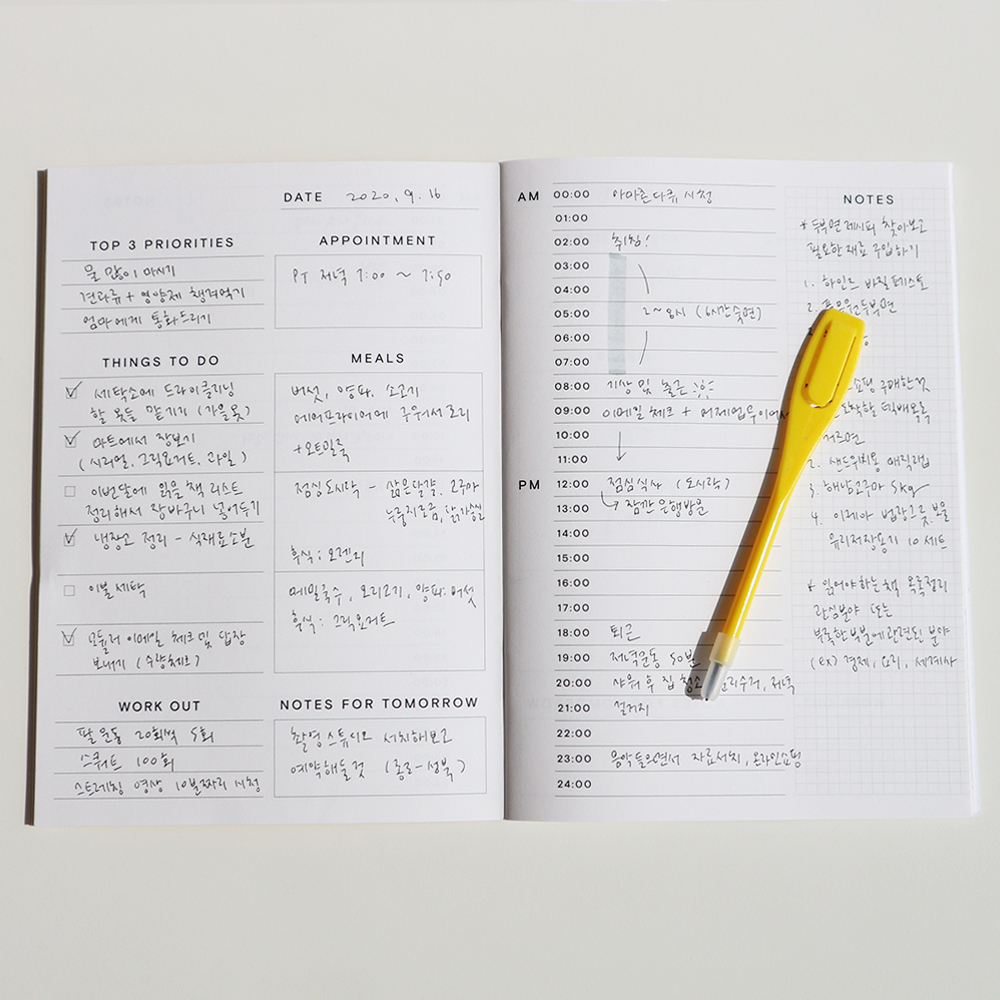 DATE 2020. 9. 16
TOP 3 PRIORITIES
물 많이 마시기
견과류 + 영양제 챙겨먹기
엄마에게 통화드리기
APPOINTMENT
PT 저녁 7:00 ~ 7:50
THINGS TO DO
세탁소에 드라이클리닝
할 옷들 맡기기 (가을옷)
마트에서 장보기
(시리얼, 그릭요거트, 과일)
이번달에 읽을 책 리스트
정리해서 장바구니 넣어두기
냉장고 정리 - 식재료소분
이불세탁
모듈러 이메일 체크 및 답장
보내기 (수량체크)
MEALS
버섯, 양파, 소고기
에어프라이어에 구워서 요리
+ 오트밀죽
점심도시락 - 삶은달걀, 고구마
누룽지조금, 닭가슴살
후식 : 오렌지
메밀국수, 오리고기, 양파, 버섯
후식 : 그릭요거트
WORK OUT
팔 운동 20회씩 5회
스쿼트 100회
스트레칭 영상 10분짜리 시청
NOTES FOR TOMORROW
촬영스튜디오 서치해보고
예약해둘것 (종로-성북)
AM
00:00 아마른다큐 시청
01:00
02:00 취침!
03:00
04:00
05:00 2~8시 (6시간숙면)
06:00
07:00
08:00 기상 및 출근
09:00 이메일 체크 + 어제업무이어서
10:00
11:00
PM
12:00 점심식사 (도시락)
13:00 잠깐 은행방문
14:00
15:00
16:00
17:00
18:00 퇴근
19:00 저녁운동 50분
20:00 샤워 후 집 청소 분리수거, 저녁
21:00 설거지
22:00
23:00 음악들으면서 자료서치, 온라인쇼핑
24:00
NOTES
* 두부면 레시피 찾아보고
필요한 재료 구입하기
1. 하인즈 바질페스토
2. 풀무원두부면
쇼핑 구매한것
도착할 택배목록
1. 거즈면
2. 샌드위치용 매직랩
3. 해남고구마 5kg
4. 이케아
유리저장용기 10세트
* 읽어야하는 책 목록정리
관심분야 또는
부족한부분에 관련된 분야
(ex) 경제, 요리, 세계사